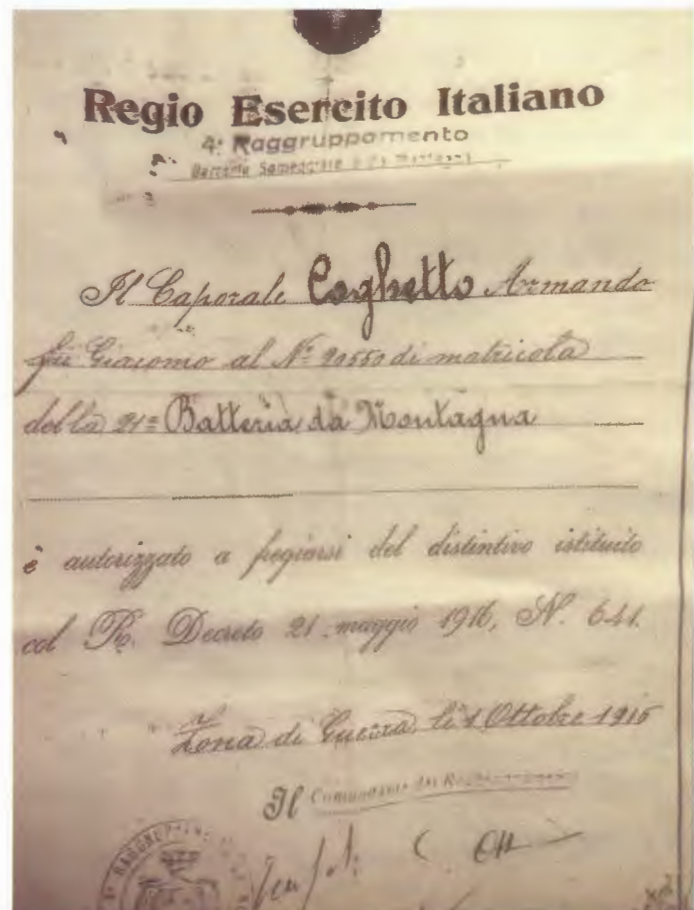 Regio Esercito Italiano
4° Raggruppamento
Batterie Someggiate e da Montagna
Il Caporale Coghetto Armando
fu Giacomo al N° 20550 di matricola
della 21ª Batteria da Montagna
è autorizzato a fregiarsi del distintivo istituito
col R. Decreto 21 maggio 1916, N. 641.
Zona di Guerra, li 1 Ottobre 1916
Il Comandante del Raggruppamento
RAGGRUPP